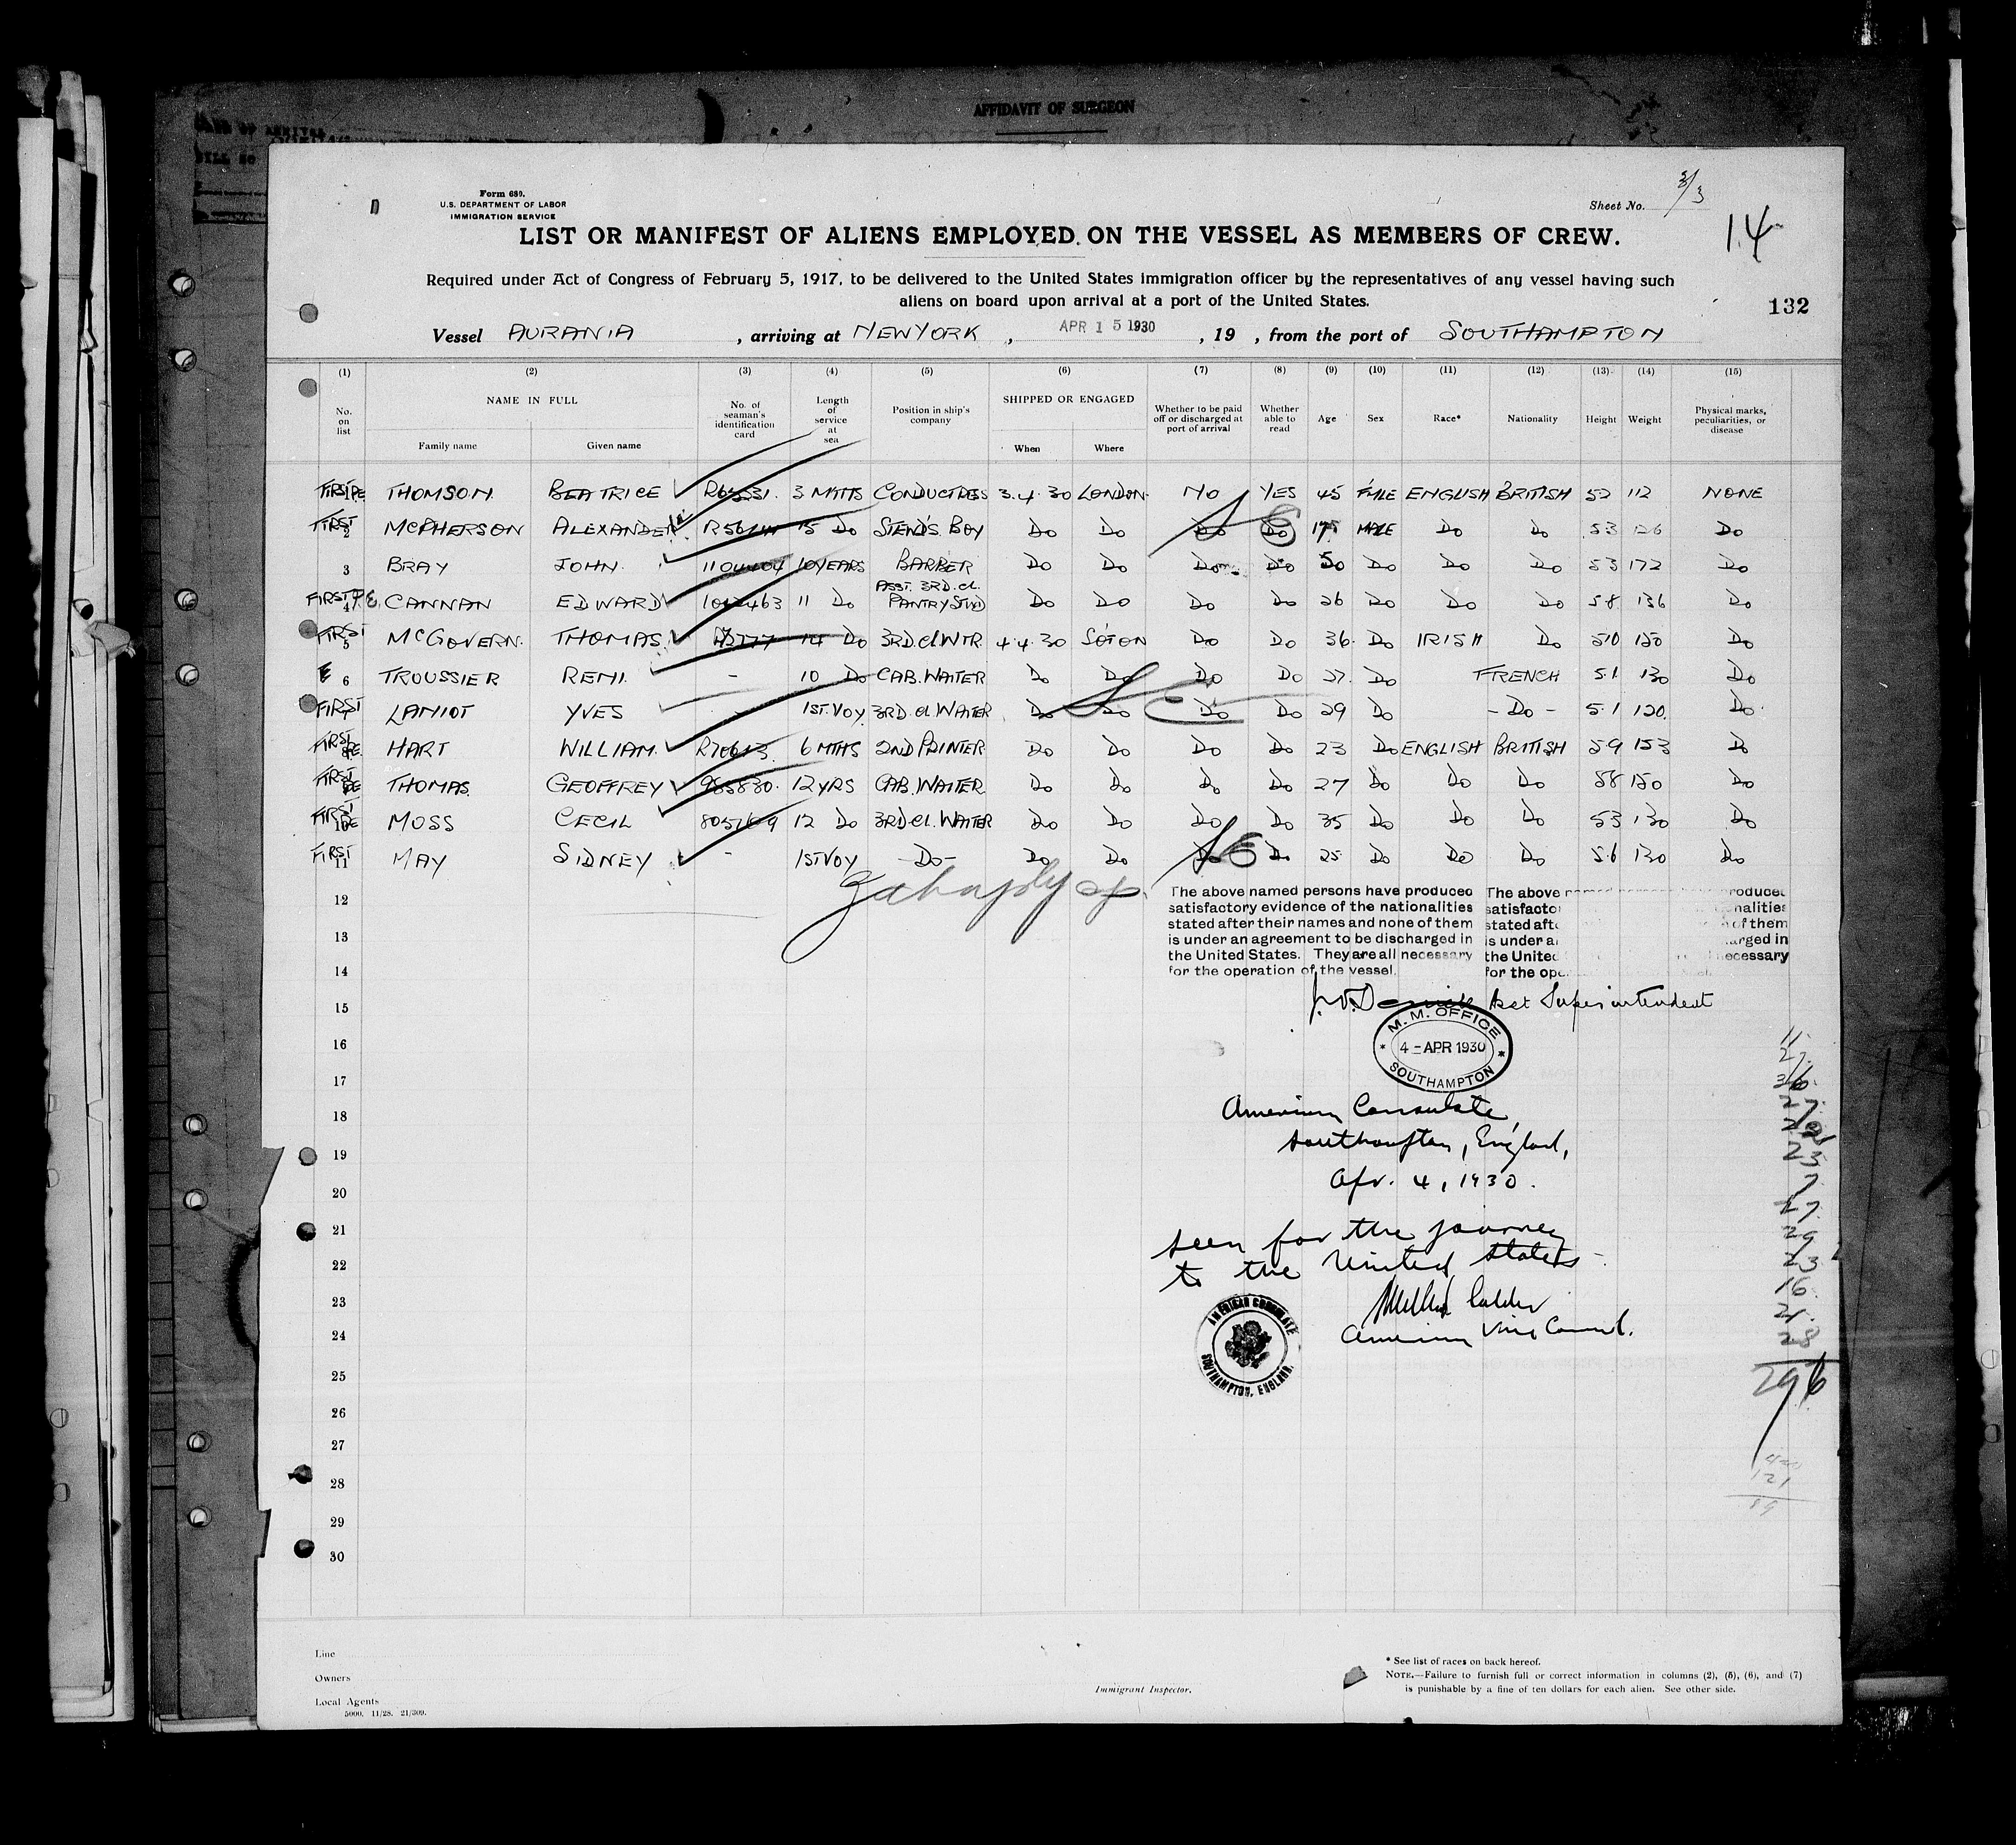 AFFIDAVIT OF SURGEON
Form 689.
U.S. DEPARTMENT OF LABOR
IMMIGRATION SERVICE
Sheet No. 3/3
14
LIST OR MANIFEST OF ALIENS EMPLOYED ON THE VESSEL AS MEMBERS OF CREW.
Required under Act of Congress of February 5, 1917, to be delivered to the United States immigration officer by the representatives of any vessel having such
aliens on board upon arrival at a port of the United States.
132
Vessel AURANIA , arriving at NEW YORK , APR 15 1930 , 19 , from the port of SOUTHAMPTON
(1) (2) (3) (4) (5) (6) (7) (8) (9) (10) (11) (12) (13) (14) (15)
No. on list NAME IN FULL Family name Given name No. of seaman's identification card Length of service at sea Position in ship's company SHIPPED OR ENGAGED When Where Whether to be paid off or discharged at port of arrival Whether able to read Age Sex Race* Nationality Height Weight Physical marks, peculiarities, or disease
FIRST PE 1 THOMSON. BEATRICE 3 MTHS CONDUCTRESS 3.4.30 LONDON. NO YES 45 F'MLE ENGLISH BRITISH 52 112 NONE
FIRST 2 McPHERSON ALEXANDER. 15 Do STEWD'S BOY Do Do Do Do 17 MALE Do Do 53 126 Do
3 BRAY JOHN. 10 YEARS BARBER Do Do Do Do 50 Do Do Do 53 172 Do
FIRST PE 4 CANNAN EDWARD 11 Do ASST. 3RD. Cl. PANTRY STWD Do Do Do Do 26 Do Do Do 58 136 Do
FIRST 5 McGOVERN. THOMAS. 14 Do 3RD. Cl WTR. 4.4.30 SOTON Do Do 36. Do IRISH Do 510 150 Do
6 TROUSSIER REMI. - 10 Do CAB. WAITER Do Do Do Do 27. Do FRENCH 5.1 130 Do
FIRST 7 LAMIOT YVES - 1ST. VOY 3RD. Cl WAITER Do Do Do Do 29 Do - Do - 5.1 120. Do.
FIRST PE HART WILLIAM. 6 MTHS 2ND PRINTER Do Do Do Do 23 Do ENGLISH BRITISH 59 153 Do
FIRST PE THOMAS. GEOFFREY 985830. 12 YRS CAB. WAITER. Do Do Do Do 27 Do Do Do 58 150 Do
FIRST PE 10 MOSS CECIL 12 Do 3RD Cl. WAITER Do Do Do Do 35 Do Do Do 53 130 Do
FIRST 11 MAY SIDNEY - 1ST VOY -Do- Do Do Do Do 25 Do Do Do 5.6 130 Do
12
13
14
15
16
17
18
19
20
21
22
23
24
25
26
27
28
29
30
The above named persons have produced
satisfactory evidence of the nationalities
stated after their names and none of them
is under an agreement to be discharged in
the United States. They are all necessary
for the operation of the vessel.
Asst Superintendent
M. M. OFFICE
* 4 - APR 1930 *
SOUTHAMPTON
American Consulate,
Southampton, England,
Apr. 4, 1930.
seen for the journey
to the United States
American Vice Consul.
AMERICAN CONSULATE
SOUTHAMPTON, ENGLAND.
296
Line
Owners
Local Agents
5000. 11/28. 21/309.
Immigrant Inspector.
* See list of races on back hereof.
NOTE.—Failure to furnish full or correct information in columns (2), (5), (6), and (7)
is punishable by a fine of ten dollars for each alien. See other side.